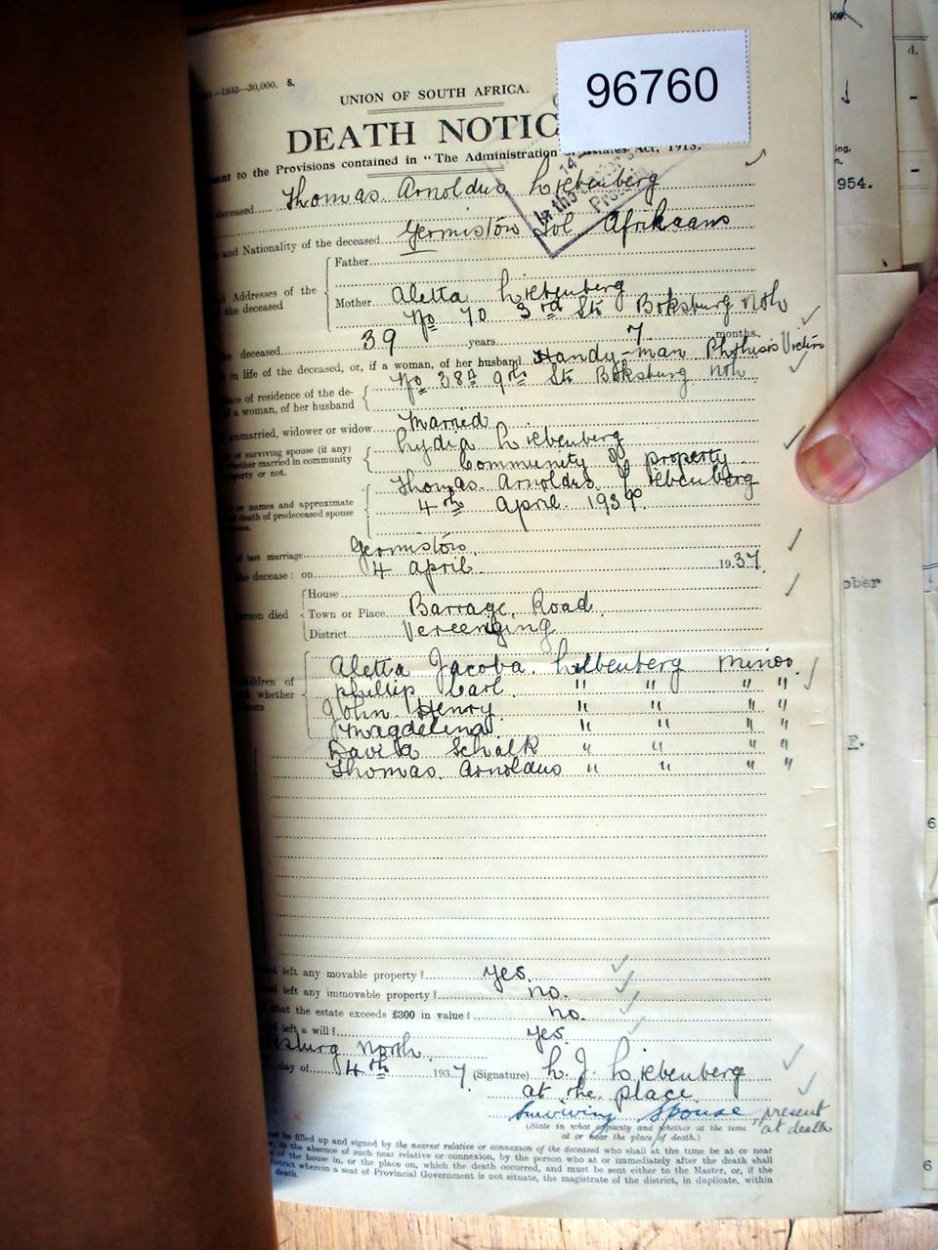 —1935—30,000. S.
UNION OF SOUTH AFRICA.
96760
DEATH NOTIC
to the Provisions contained in "The Administration Estates Act, 1913.
deceased Thomas Arnoldus Liebenberg
and Nationality of the deceased Germiston Afrikaans
Father
Addresses of the
the deceased
Mother Aletta Liebenberg
No 70 3rd Str Boksburg Noh
deceased 39 years 7 months.
in life of the deceased, or, if a woman, of her husband Handy-man Phthisis Victim
ace of residence of the de-
f a woman, of her husband
No 38A 9th Str Boksburg Noh
unmarried, widower or widow Married
of surviving spouse (if any)
whether married in community
perty or not.
Lydia Liebenberg
Community of property
or names and approximate
of death of predeceased spouse
Thomas Arnoldus Liebenberg
4th April 1937
of last marriage Germiston
the decease: on 4 April 1937.
erson died
House
Town or Place Barrage Road
District Vereeniging
hildren of
whether
nors
Aletta Jacoba Liebenberg minor
Phillip Carl " " " "
John Henry " " " "
Magdelina " " " "
David Schalk " " " "
Thomas Arnoldus " " " "
left any movable property? yes.
left any immovable property? no.
that the estate exceeds £300 in value? no.
left a will? yes.
ksburg North
day of 4th 1937 (Signature) L. J. Liebenberg
at the place
Surviving Spouse present
at death
(State in what capacity and whether at the time
at or near the place of death.)
be filled up and signed by the nearest relative or connexion of the deceased who shall at the time be at or near
in the absence of such near relative or connexion, by the person who at or immediately after the death shall
of the house in, or the place on, which the death occurred, and must be sent either to the Master, or, if the
district wherein a seat of Provincial Government is not situate, the magistrate of the district, in duplicate, within
death.
954.
ober
F.
6
6